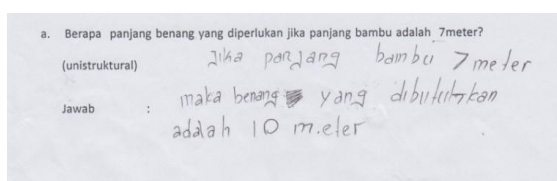 a. Berapa panjang benang yang diperlukan jika panjang bambu adalah 7meter?
(unistruktural) jika panjang bambu 7 meter
maka benang yang dibutuhkan
Jawab :
adalah 10 meter